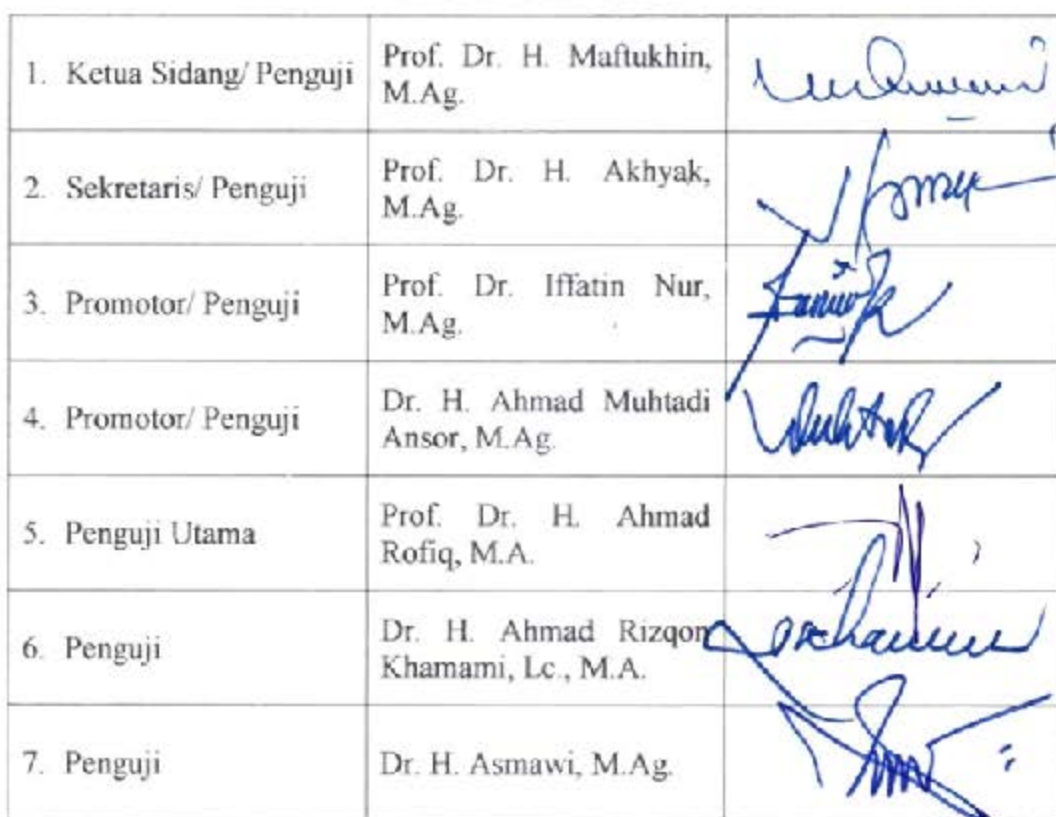 1. Ketua Sidang/ Penguji
Prof. Dr. H. Maftukhin,
M.Ag.
2. Sekretaris/ Penguji
Prof. Dr. H. Akhyak,
M.Ag.
3. Promotor/ Penguji
Prof. Dr. Iffatin Nur,
M.Ag.
4. Promotor/ Penguji
Dr. H. Ahmad Muhtadi
Ansor, M.Ag.
5. Penguji Utama
Prof. Dr. H. Ahmad
Rofiq, M.A.
6. Penguji
Dr. H. Ahmad Rizqon
Khamami, Lc., M.A.
7. Penguji
Dr. H. Asmawi, M.Ag.